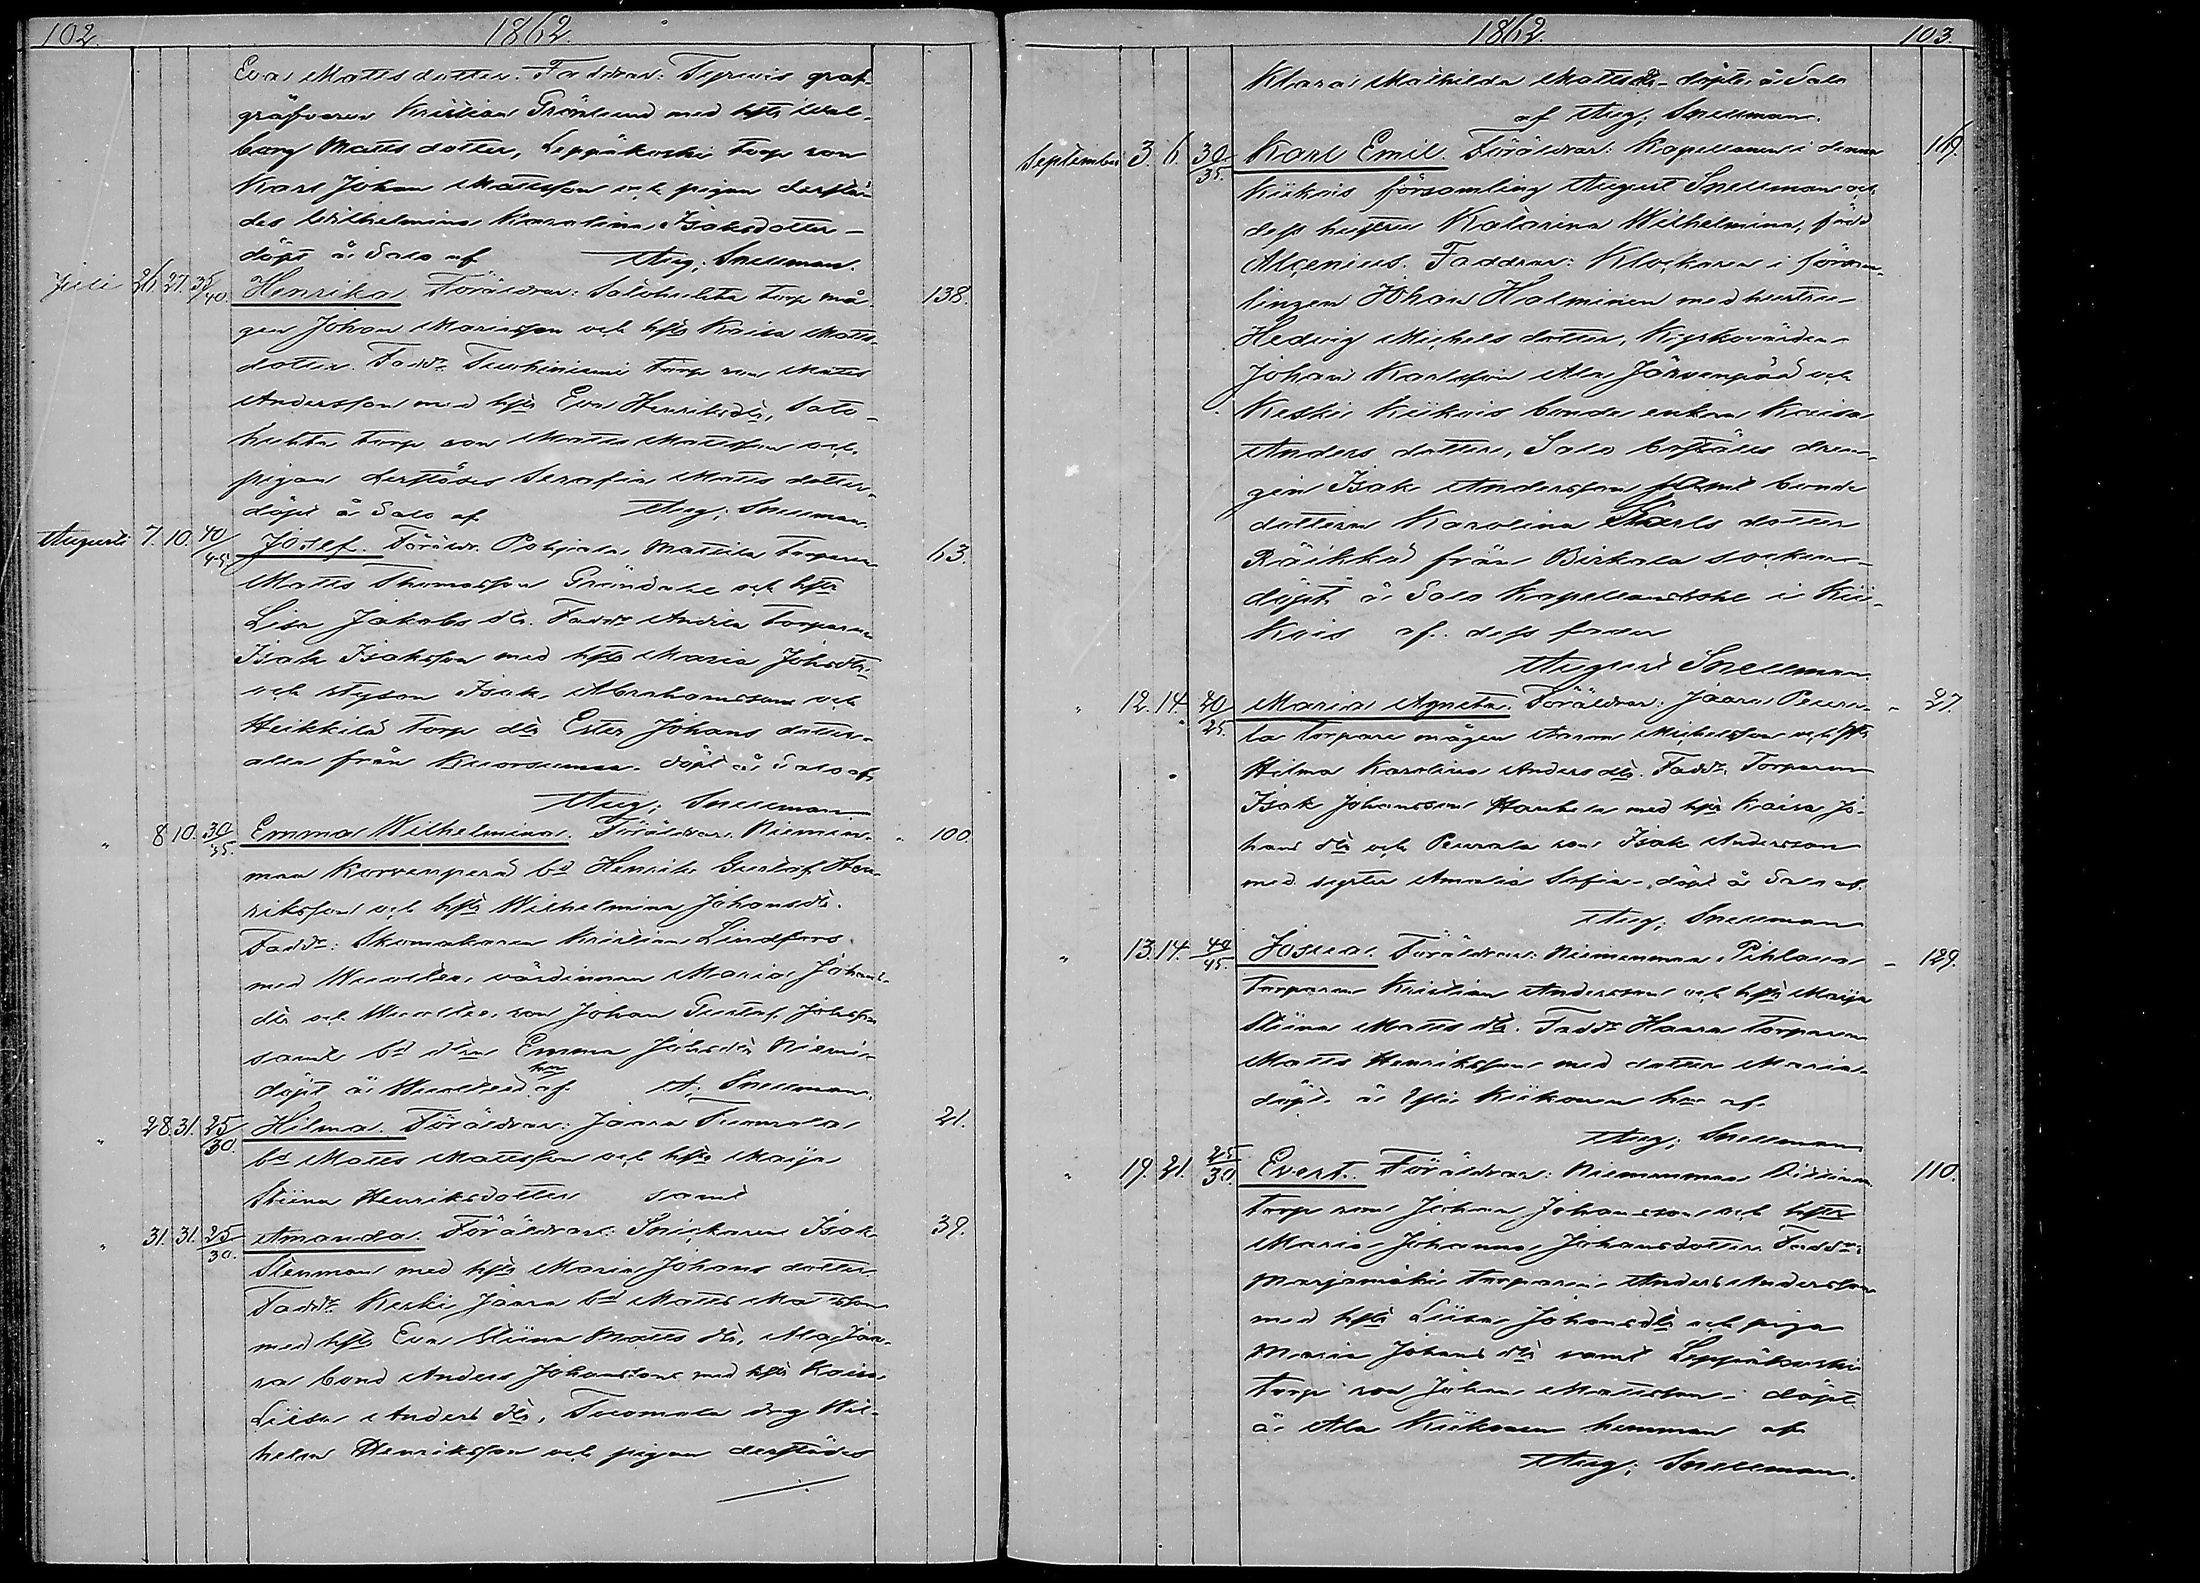 102. 1862.
Eva Matts dotter. Faddrar: Tyrvis graf-
gräfvaren Kristian Grönlund med hstr Wal-
borg Matts dotter, Leppäkoski torp son
Karl Johan Mattsson och pigan derstä-
des Wilhelmina Karolina Isaksdotter -
döpt å Salo af Aug: Snellman.
Juli 26. 27. 35/40. Henrika. Föräldrar: Salohuhta torp må- 138.
gen Johan Mariasson och hstr Kaisa Matts
dotter. Faddr torp son Matts
Andersson med hstr Eva Henriksdtr, Salo-
huhta torp son Matts Mattsson och
pigan derstädes Serafia Matts dotter.
döpt å Salo af Aug: Snellman.
Augusti 7. 10. 40/45. Josef. Föräldr. Pohjala Mattila torparen 63.
Matts Thomasson Gröndahl och hstr
Lisa Jakobs dtr. Faddr Andila torparen
Isak Isaksson med hstr Maria Johsdtr
och styson Isak Abrahamsson och
Heikkilä torp dtr Ester Johans dotter
alla från Kuorsumaa. döpt å Salo af
Aug; Snellman.
" 8 10. 30/35. Emma Wilhelmina. Föräldrar. Niemen- " 100.
maa Korvenperä bd Henrik Gustaf Hen-
riksson och hstr Wilhelmina Johansdtr.
Faddr: Skomakaren Kristian Lindfors
med värdinnan Maria Johans
dtr och son Johan Gustaf Johsson
samt bd dtren Emma Johsdtr Niemi.
döpt å hm af A; Snellman.
" 28. 31. 25/30. Hilma. Föräldrar: Jaara Tuomola 21.
bd Matts Mattsson och hstr Maija
Stiina Henriksdotter samt
" 31. 31. 25/30. Amanda. Föräldrar: Snickaren Isak 39.
Stenman med hstr Maria Johans dotter.
Faddr. Keski Jaara bd Matts Mattsson
med hstr Eva Stiina Matts dtr, Ala Jaa-
ra bond Anders Johansson med hstr Kaisa
Liisa Anders dtr, Tuomola drg Wil-
helm Henriksson och pigan derstädes
./.
1862. 103.
Klara Mathilda Mattsdtr - döpte å Salo
af Aug; Snellman.
September 3. 6. 30/35. Karl Emil. Föräldrar: Kapellanen i denna 169.
Kiikois församling August Snellman och
dess hustru Katarina Wilhelmina, född
Alcenius. Faddrar: Klockaren i försam-
lingen Johan Halminen med hustru
Hedvig Michels dotter, Kyrkovärden
Johan Karlsson Ala Järvenpää och
Keski Kiikois bonde enkan Kaisa
Anders dotter, Salo boställes dren-
gen Isak Andersson samt bonde
dottren Karolina Karls dotter
Räikkä från Birkala socken -
döpt å Salo Kapellansbohl i Kii-
kois af dess fader
August Snellman
" 12. 14. 20/25. Maria Agneta. Föräldrar: Jaara Peura- " 27.
la torpare mågen Aron Michelsson och hstr
Hilma Karolina Anders dtr. Faddr. Torparen
Isak Johansson med hstr Kaisa Jo-
hans dtr och Peurala son Isak Andersson
med syster Amalia Sofia - döpt å Salo af
Aug; Snellman
" 13. 14. 40/45. Josua. Föräldrar: Niemenmaa Pihlava - 129.
torparen Kristian Andersson och hstr Maija
Stiina Matts dtr. Faddr Haara torparen
Matts Henriksson med dotter Maria.
döpt å Yli Kiikonen hm af
Aug; Snellman
" 19. 21. 25/30 Evert. Föräldrar: Niemenmaa 110.
torp son Johan Johansson och hstr
Maria Johanna Johansdotter. Faddr:
Marjamäki torparen Anders Andersson
med hstr Liisa Johansdtr och piga
Maria Johans dtr samt Leppäkoski
torp son Johan Mattsson - döpt
å Ala Kiikonen hemman af
Aug; Snellman.